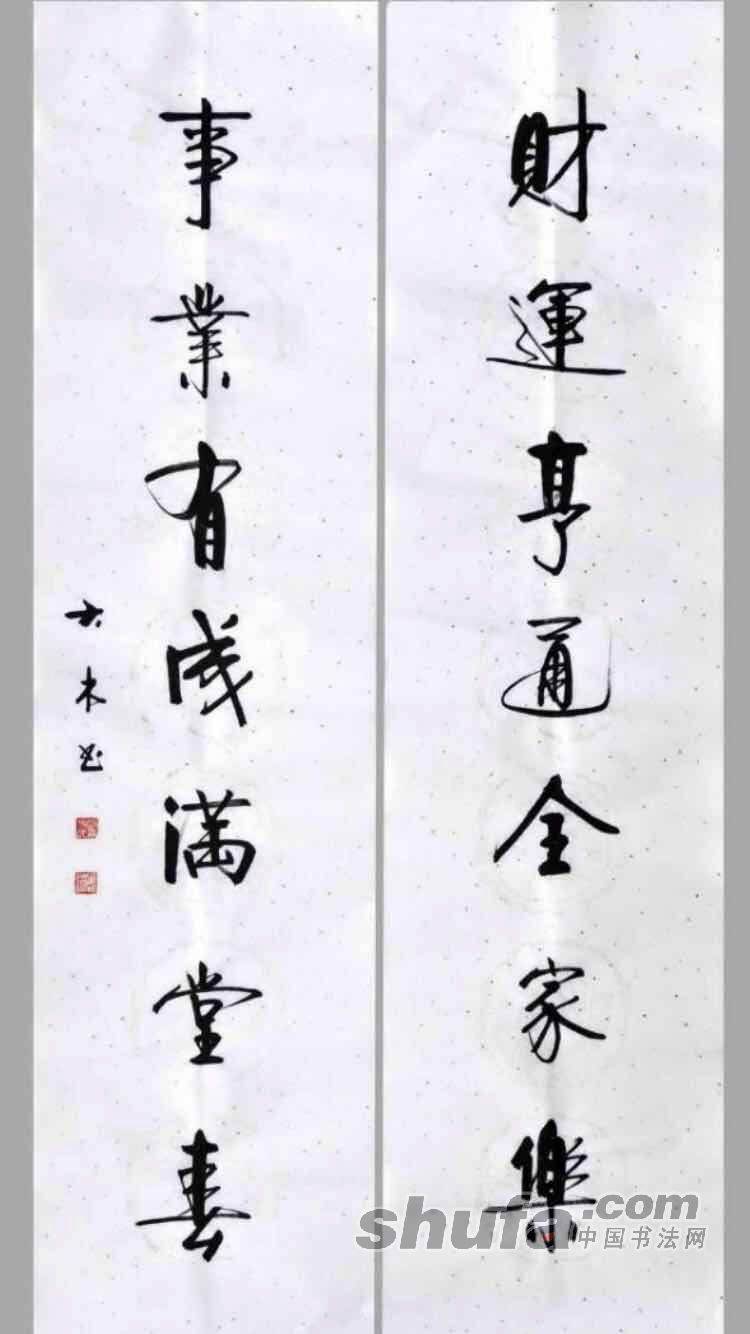 財運亨通全家樂
事業有成满堂春
大木书
shufa.com
中国书法网